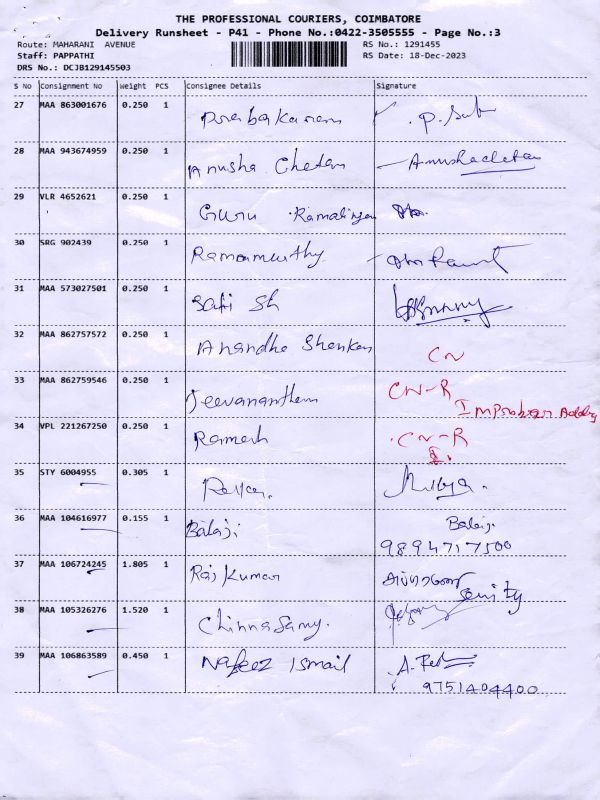 THE PROFESSIONAL COURIERS, COIMBATORE
Delivery Runsheet - P41 - Phone No.:0422-3505555 - Page No.:3
Route: MAHARANI AVENUE RS No.: 1291455
Staff: PAPPATHI RS Date: 18-Dec-2023
DRS No.: DCJB129145503
S No Consignment No Weight PCS Consignee Details Signature
27 MAA 863001676 0.250 1 Prabakaran P. Sub
28 MAA 943674959 0.250 1 Anusha Chetan Anushachetan
29 VLR 4652621 0.250 1 Guru Ramalingam
30 SRG 902439 0.250 1 Ramamurthy
31 MAA 573027501 0.250 1 Sati Sh
32 MAA 862757572 0.250 1 Anandha Shenkar CN
33 MAA 862759546 0.250 1 Jeevananthem CN-R
34 VPL 221267250 0.250 1 Ramesh CN-R
35 STY 6004955 0.305 1
36 MAA 104616977 0.155 1 Balaji Balaji
9894717500
37 MAA 106724245 1.805 1 Raj Kumar
38 MAA 105326276 1.520 1 Chinnasamy.
39 MAA 106863589 0.450 1 Nafeez Ismail
9751404400